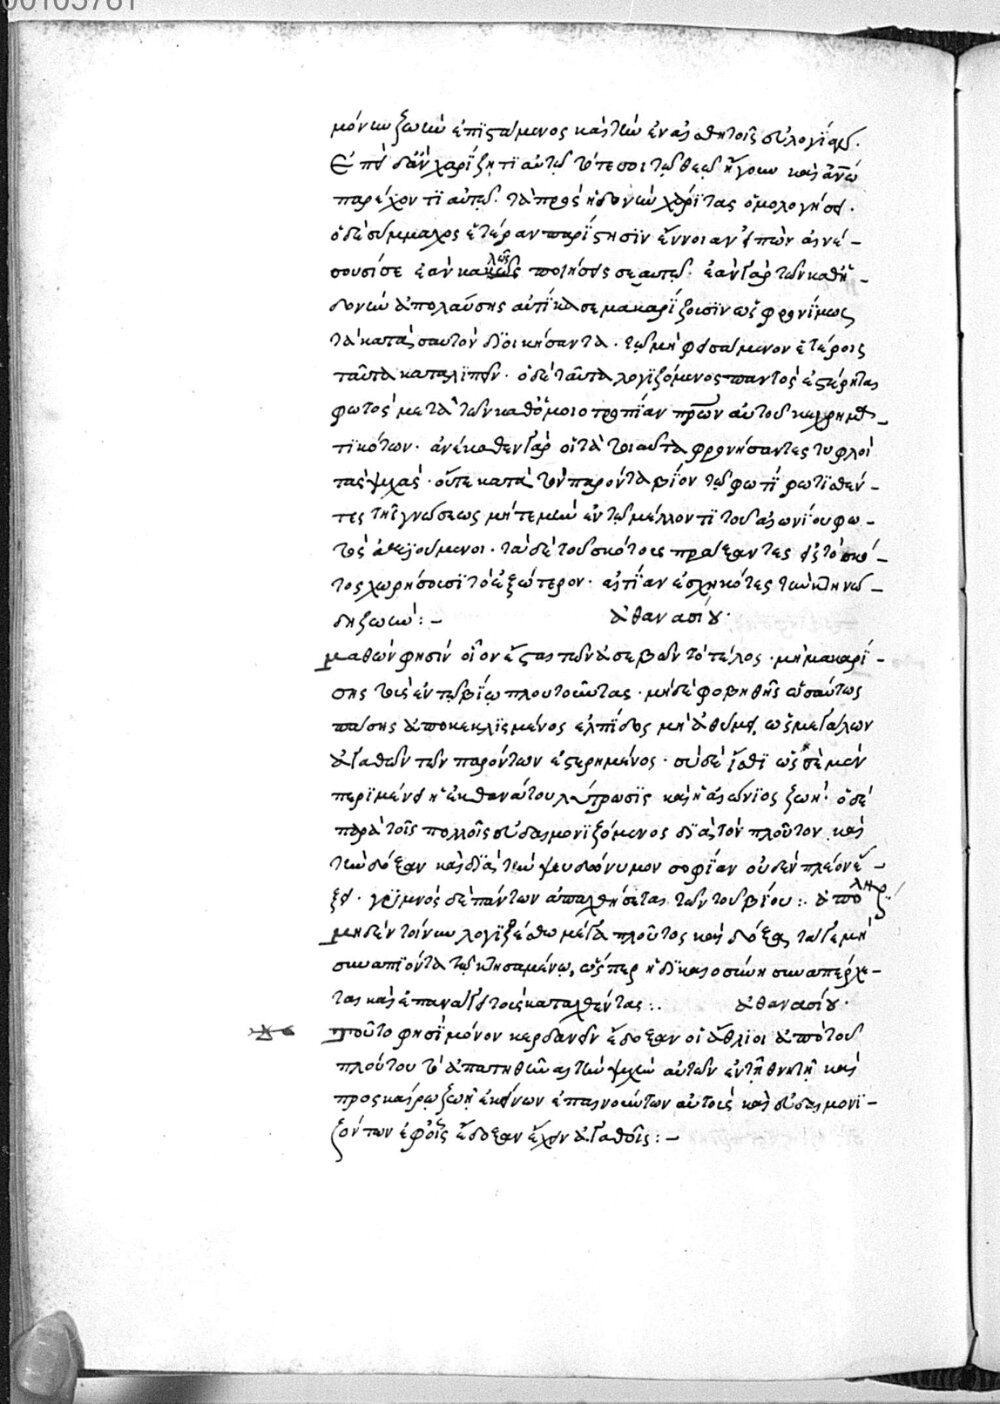 00105761
μόνων ζωὴν ἐπιστάμενος καὶ τὴν ἐν αἰσθητοῖς εὐλογίαν.
παρέχοντι αὐτῷ· τὰ πρὸς ἡδονὴν χάριτας ὁμολογήσει·
ὁ δὲ σύμμαχος ἑτέραν παρίστησιν ἔννοιαν εἰπὼν αἰνέ-
σουσί σε ἐὰν καλῶς ποιήσῃς σεαυτῷ· ἐὰν γὰρ τῶν καθ' ἡ-
δονὴν ἀπολαύσῃς αὐτίκα σε μακαρίζουσιν ὡς φρονίμως
τὰ κατὰ σαυτὸν διοικήσαντα· τῷ μὴ φεισάμενον ἑτέροις
ταῦτα καταλιπεῖν· ὁ δὲ ταῦτα λογιζόμενος παντὸς ἐστέρηται
φωτὸς μετὰ τῶν καθ' ὁμοιοτροπίαν πρῶν αὐτοῦ κεχρημα-
τικότων· ἀνέκαθεν γὰρ οἱ τὰ τοιαῦτα φρονήσαντες τυφλοὶ
τὰς ψυχάς· οὔτε κατὰ τὸν παρόντα βίον τῷ φωτὶ φωτισθέν-
τες τῆς γνώσεως μήτε μὴν ἐν τῷ μέλλοντι τοῦ αἰωνίου φω-
τὸς ἀξιούμενοι· τὰ δὲ τοῦ σκότους πράξαντες εἰς τὸ σκό-
τος χωρήσουσι τὸ ἐξώτερον· αἰτίαν ἐσχηκότες τὴν κτηνώ-
δη ζωήν:- ἀθανασίου·
μαθὼν φησὶν οἷον ἔσται τῶν ἀσεβῶν τὸ τέλος· μὴ μακαρί-
σῃς τοὺς ἐν τῷ βίῳ πλουτοῦντας· μηδὲ φοβηθῇς ὡσαύτως
πάσης ἀποκεκλισμένος ἐλπίδος μὴ ἀθύμει, ὡς μεγάλων
ἀγαθῶν τῶν παρόντων ἐστερημένος· σὺ δὲ ἴσθι ὡς σὲ μὲν
περιμένει ἡ ἐκ θανάτου λύτρωσις καὶ ἡ αἰώνιος ζωή· ὁ δὲ
παρὰ τοῖς πολλοῖς εὐδαιμονιζόμενος διὰ τὸν πλοῦτον καὶ
τὴν δόξαν καὶ διὰ τὴν ψευδώνυμον σοφίαν οὐδὲν πλέον ἕ-
ξει· γυμνὸς δὲ πάντων ἀπαλθήσεται τῶν τοῦ βίου:. ἀπολιναρ.
μηδὲν τοίνυν λογιζέσθω μέγα πλοῦτος καὶ δόξα τά γε μὴ
συναπιόντα τῷ κτησαμένῳ, ὥσπερ ἡ δικαιοσύνη συναπέρχε-
ται καὶ ἐπανάγει τοὺς κατελθόντας:. ἀθανασίου·
τοῦτο φησὶ μόνον κερδαίνειν ἔδοξαν οἱ ἄθλιοι ἀπὸ τοῦ
πλούτου τὸ ἀπατηθῆναι τὴν ψυχὴν αὐτῶν ἐν τῇ θνητῇ καὶ
προσκαίρῳ ζωῇ ἐκείνων ἐπαινούντων αὐτοὺς καὶ εὐδαιμονι-
ζόντων ἐφ' οἷς ἔδοξαν ἔχειν ἀγαθοῖς:-